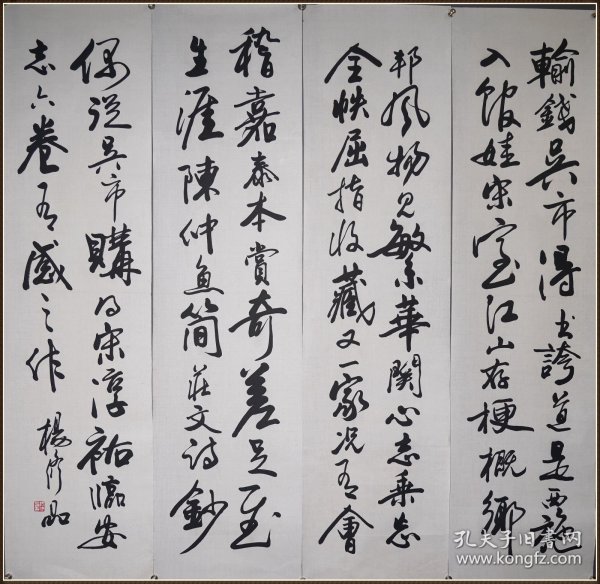 輸錢吳市得書誇道是西施
入館娃宋室江山存梗概鄉
邦風物見繁華關心志乘忘
全帙屈指收藏又一家況有會
稽嘉泰本賞奇差足慰
生涯陳仲魚簡莊文詩鈔
偶從吳市購得宋淳祐臨安
志六卷有感之作 楊
孔夫子旧书网
www.kongfz.com